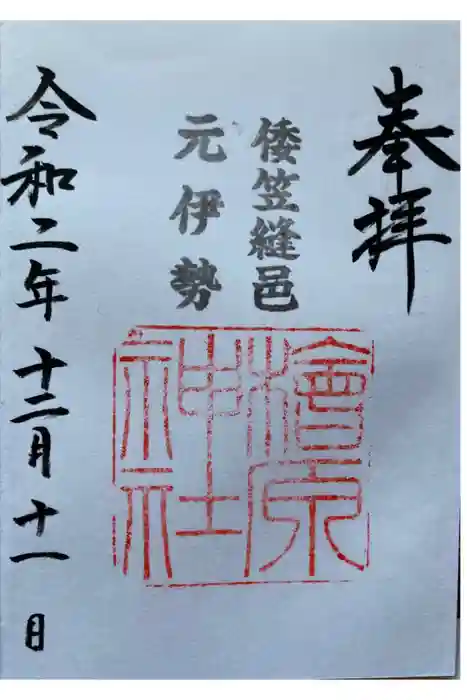 奉拝
倭笠縫邑
元伊勢
檜原
神社
令和二年十二月十一日